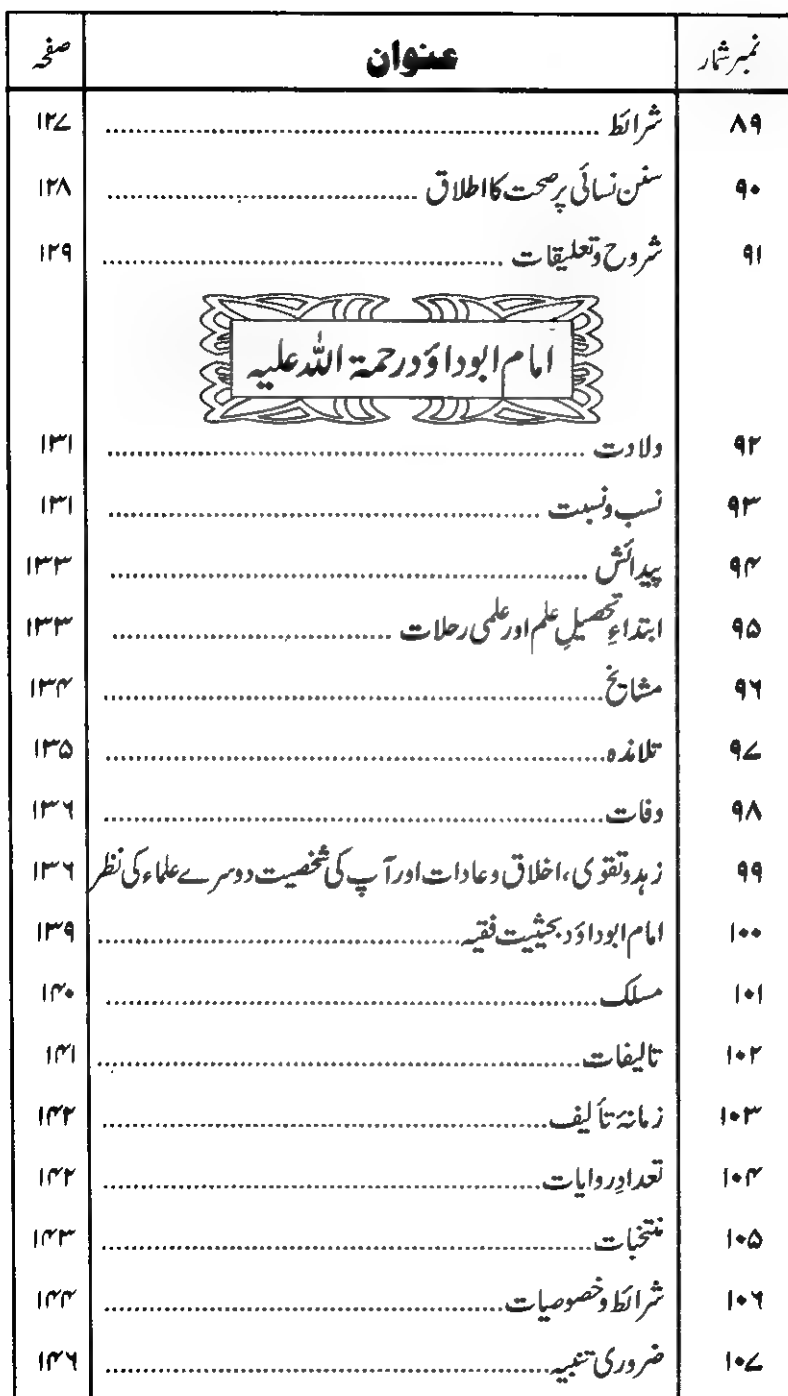 نمبر شمار عنوان صفحہ
۸۹ شرائط ........ ۱۲۷
۹۰ سنن نسائی پر صحت کا اطلاق ........ ۱۲۸
۹۱ شروح و تعلیقات ........ ۱۲۹
امام ابوداؤد رحمۃ اللہ علیہ
۹۲ ولادت ........ ۱۳۱
۹۳ نسب ونسبت ........ ۱۳۱
۹۴ پیدائش ........ ۱۳۳
۹۵ ابتداءِ تحصیلِ علم اور علمی رحلات ........ ۱۳۳
۹۶ مشایخ ........ ۱۳۴
۹۷ تلامذہ ........ ۱۳۵
۹۸ وفات ........ ۱۳۶
۹۹ زہد وتقوی، اخلاق وعادات اور آپ کی شخصیت دوسرے علماء کی نظر ۱۳۶
۱۰۰ امام ابوداؤد بحیثیت فقیہ ........ ۱۳۹
۱۰۱ مسلک ........ ۱۴۰
۱۰۲ تالیفات ........ ۱۴۱
۱۰۳ زمانۂ تألیف ........ ۱۴۲
۱۰۴ تعدادِ روایات ........ ۱۴۲
۱۰۵ منتخبات ........ ۱۴۳
۱۰۶ شرائط وخصوصیات ........ ۱۴۴
۱۰۷ ضروری تنبیہ ........ ۱۴۶